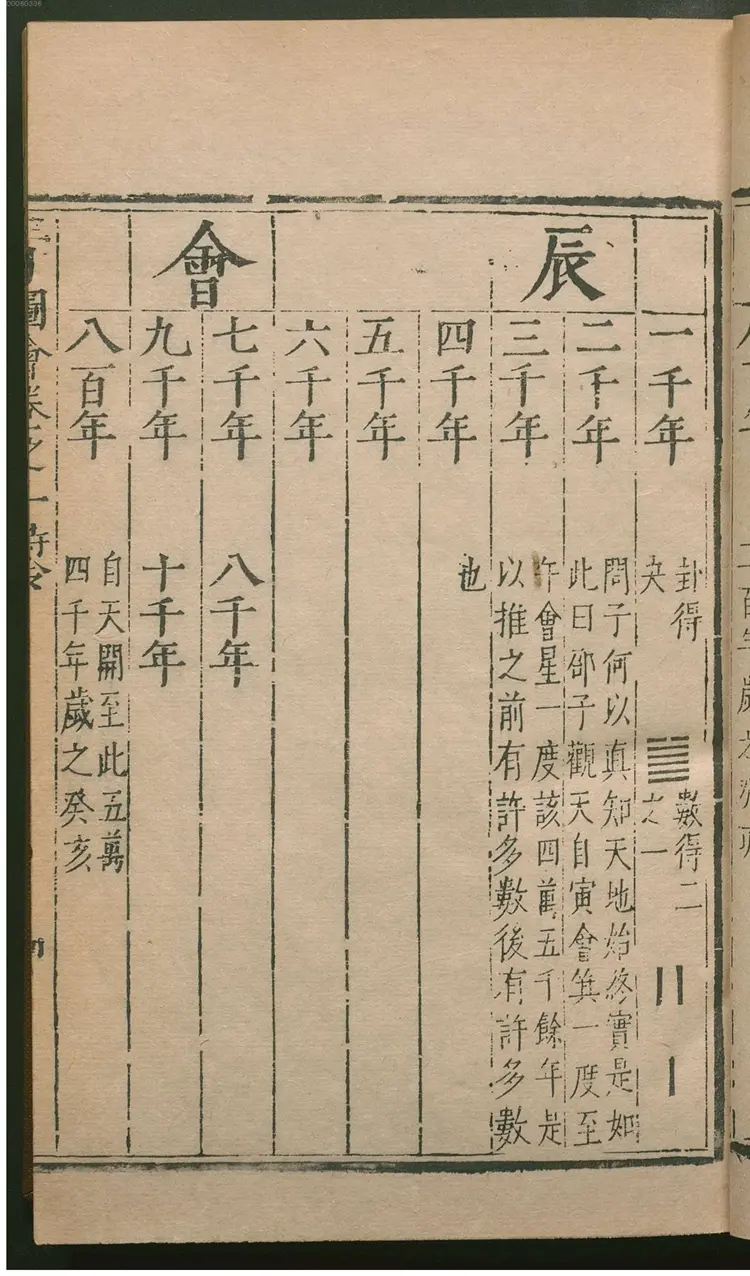 辰會
一千年
卦得
夬
數得二
之一
二千年
問子何以真知天地始終實是如
此曰邵子觀天自寅會箕一度至
三千年
午會星一度該四萬五千餘年是
以推之前有許多數後有許多數
四千年
也
五千年
六千年
七千年
八千年
九千年
十千年
八百年
自天開至此五萬
四千年歲之癸亥
圖會卷之一時令
00060336